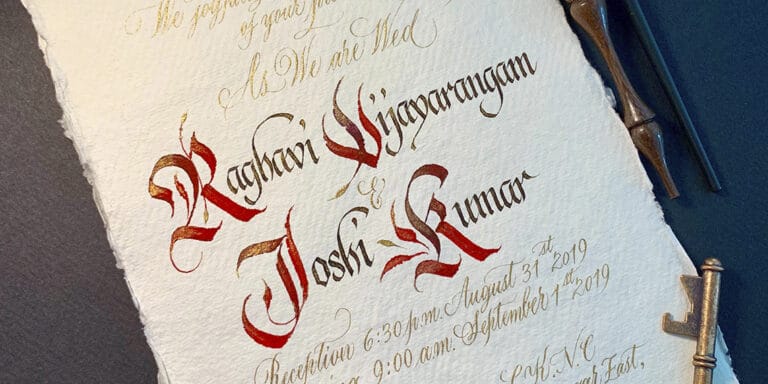 We joyfully
of your
As We are Wed
Raghavi Vijayarangam
&
Joshi Kumar
Reception 6:30 p.m. August 31st 2019
9:00 a.m. September 1st 2019
L.K.N.C
East,